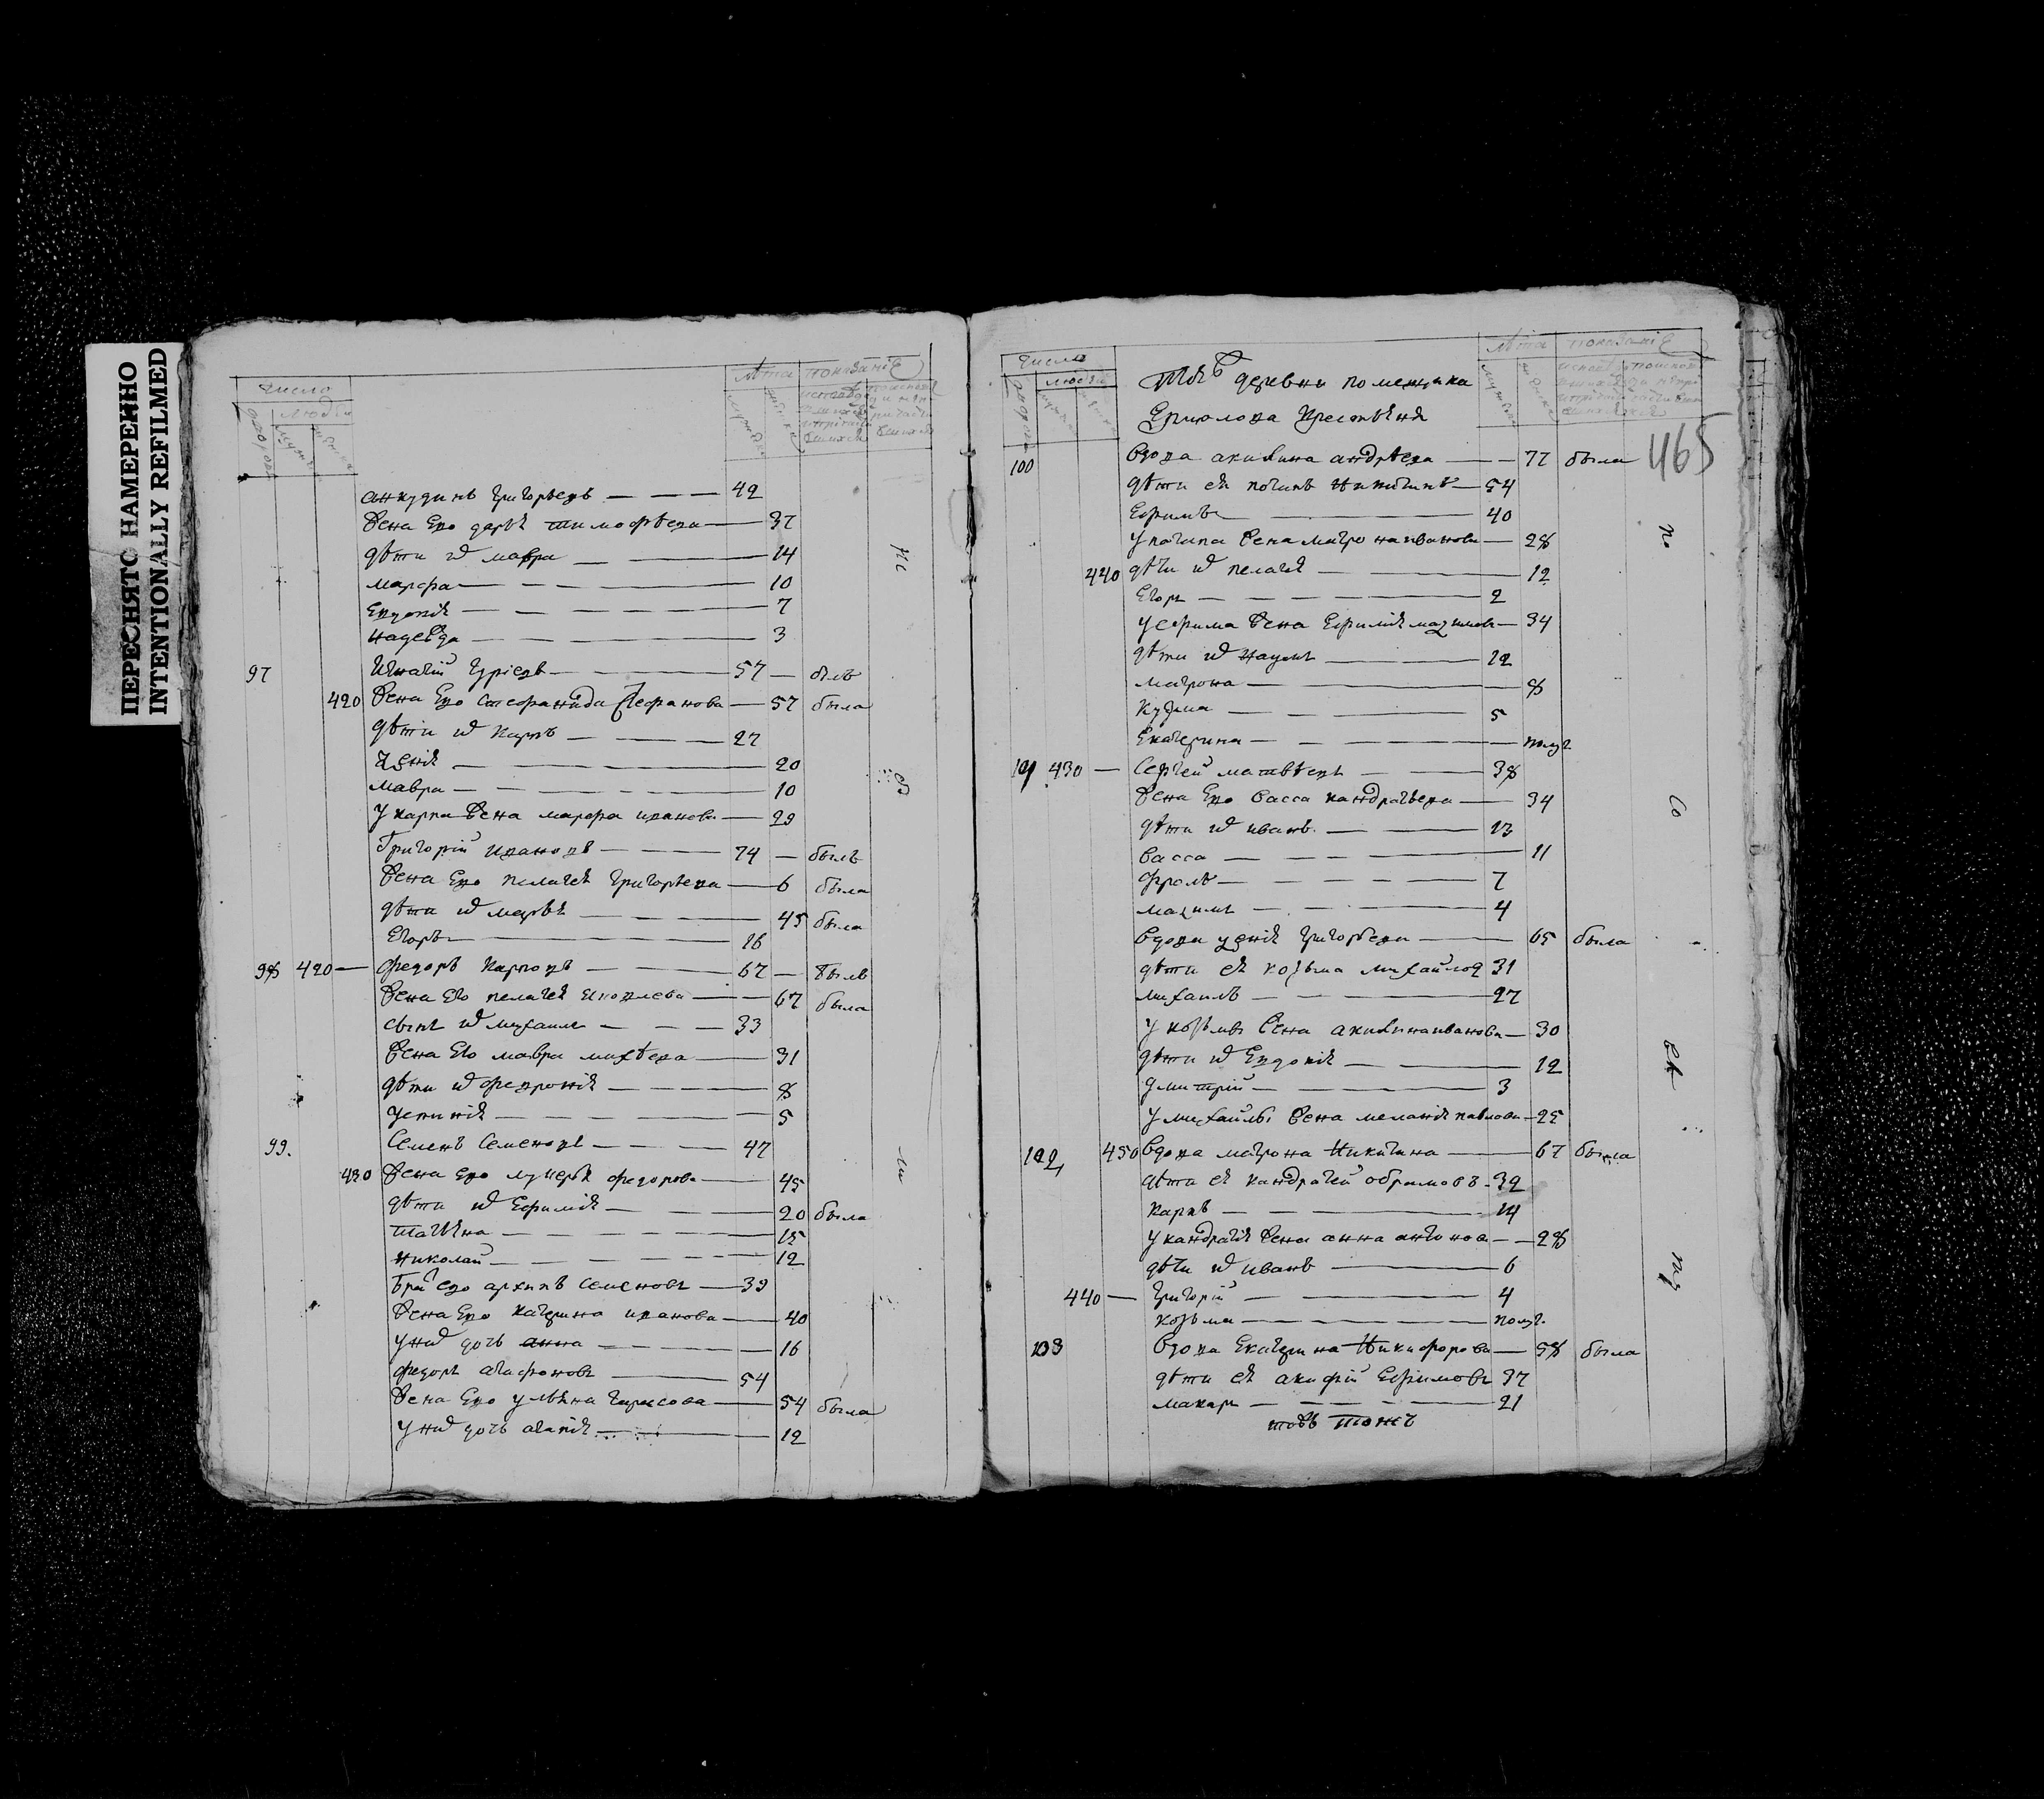 ПЕРЕСНЯТО НАМЕРЕННО
INTENTIONALLY REFILMED
число
людей
лѣта показанiе
анкудинъ григорьевъ 42
жена ево дарья тимофѣева 37
дѣти их мавра 14
марфа 10
Евдокия 7
надежда 3
97 Игнатiй 57 былъ
420 жена ево стефанида стефанова 57 была
дѣти их карпъ 27
20
мавра 10
у карпа жена марфа иванова 29
Григорiй ивановъ 74 былъ
жена ево пелагея григорьева 6 была
дѣти их марья 45 была
Егоръ 16
98 420 федоръ карповъ 67 былъ
жена его пелагея яковлева 67 была
сынъ их михаилъ 33
жена его мавра михѣева 31
дѣти их феврония 8
5
99. Семенъ Семеновъ 47
430 жена ево лукерья федорова 45
дѣти их Ефимия 20 была
татьяна 15
николай 12
брат ево архипъ семеновъ 39
жена ево катерина иванова 40
у них дочь анна 16
федоръ агафоновъ 54
жена ево ульяна тарасова 54 была
у них дочь агапия 12
число
людей
лѣта показанiе
Той ж деревни помещика
Ермолова крестьяня
465
100 вдова акилина андрѣева 77 была
дѣти ея потапъ никитинъ 54
Ефимъ 40
у потапа жена матрона иванова 28
440 дѣти их пелагея 12
Егоръ 2
у ефима жена Ефимия максимова 34
дѣти их наумъ 12
матрона 8
кузма 5
Екатерина полуг
101 430 Сергей матвѣевъ 38
жена ево васса кандратьева 34
дѣти их иванъ 13
васса 11
фролъ 7
максимъ 4
вдова ксения григорьева 65 была
дѣти ея козьма михайлов 31
михаилъ 27
у козьмы жена акилина иванова 30
дѣти их Евдокия 12
дмитрiй 3
у михайлы жена мелания павлова 25
102 450 вдова матрона никитина 67 была
дѣти ея кандратей обрамовъ 32
карпъ 14
у кандратя жена анна антонова 28
дѣти их иванъ 6
440 григорiй 4
козьма полуг.
103 вдова Екатерина Никифорова 58 была
дѣти ея акифiй Ефимовъ 37
макаръ 21